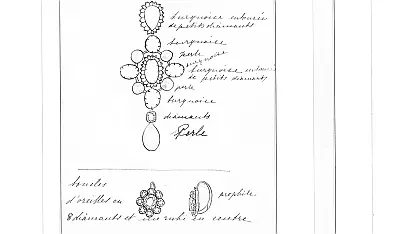 turquoise entourée
de petits diamants
turquoise
perle
turquoise
turquoise entourée
de petits diamants
perle
turquoise
diamants
Perle
boucles
d'oreilles en
profile
8 diamants et un rubi en centre